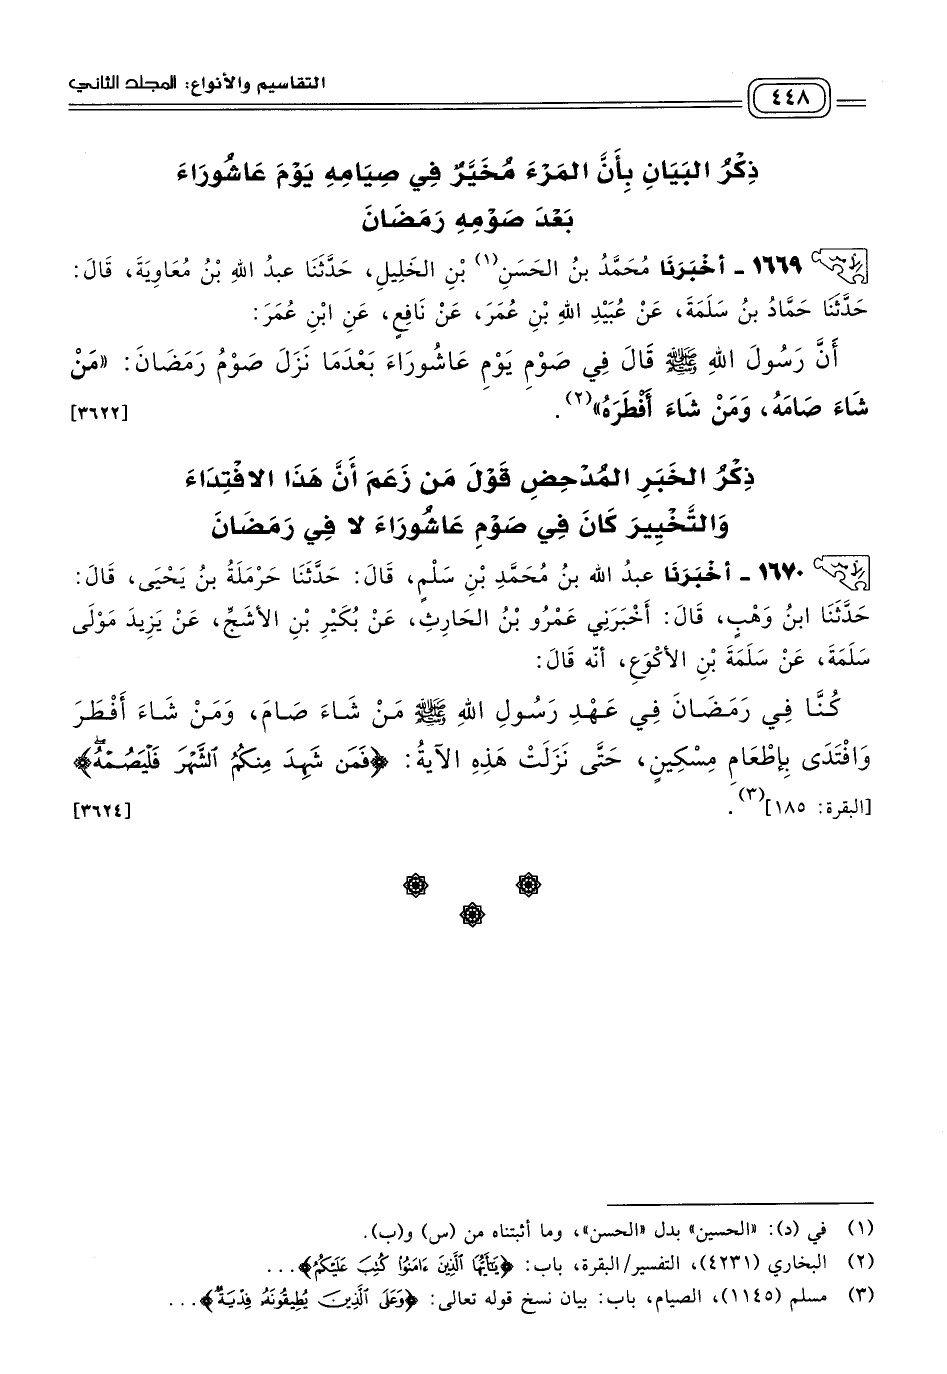 التقاسيم والأنواع: المجلد الثاني
٤٤٨
ذِكْرُ البَيَانِ بِأَنَّ المَرْءَ مُخَيَّرٌ فِي صِيَامِهِ يَوْمَ عَاشُورَاءَ
بَعْدَ صَوْمِهِ رَمَضَانَ
١٦٦٩ - أَخْبَرَنَا مُحَمَّدُ بنُ الحَسَنِ(١) بْنِ الخَلِيلِ، حَدَّثَنَا عبدُ اللهِ بْنُ مُعَاوِيَةَ، قَالَ:
حَدَّثَنَا حَمَّادُ بنُ سَلَمَةَ، عَنْ عُبَيْدِ اللهِ بْنِ عُمَرَ، عَنْ نَافِعٍ، عَنِ ابْنِ عُمَرَ:
أَنَّ رَسُولَ اللهِ ﷺ قَالَ فِي صَوْمِ يَوْمِ عَاشُورَاءَ بَعْدَمَا نَزَلَ صَوْمُ رَمَضَانَ: «مَنْ
شَاءَ صَامَهُ، وَمَنْ شَاءَ أَفْطَرَهُ»(٢). [٣٦٢٢]
ذِكْرُ الخَبَرِ المُدْحِضِ قَوْلَ مَن زَعَمَ أَنَّ هَذَا الافْتِدَاءَ
وَالتَّخْيِيرَ كَانَ فِي صَوْمِ عَاشُورَاءَ لا فِي رَمَضَانَ
١٦٧٠ - أَخْبَرَنَا عبدُ الله بنُ مُحَمَّدِ بْنِ سَلْمٍ، قَالَ: حَدَّثَنَا حَرْمَلَةُ بنُ يَحْيَى، قَالَ:
حَدَّثَنَا ابنُ وَهْبٍ، قَالَ: أَخْبَرَنِي عَمْرُو بْنُ الحَارِثِ، عَنْ بُكَيْرِ بْنِ الأشَجِّ، عَنْ يَزِيدَ مَوْلَى
سَلَمَةَ، عَنْ سَلَمَةَ بْنِ الأكْوَعِ، أنّه قَالَ:
كُنَّا فِي رَمَضَانَ فِي عَهْدِ رَسُولِ اللهِ ﷺ مَنْ شَاءَ صَامَ، وَمَنْ شَاءَ أَفْطَرَ
وَافْتَدَى بِإطْعَامِ مِسْكِينٍ، حَتَّى نَزَلَتْ هَذِهِ الآيَةُ: ﴿فَمَن شَهِدَ مِنكُمُ ٱلشَّهْرَ فَلْيَصُمْهُ﴾
[البقرة: ١٨٥](٣). [٣٦٢٤]
(١) في (د): «الحسين» بدل «الحسن»، وما أثبتناه من (س) و(ب).
(٢) البخاري (٤٢٣١)، التفسير/البقرة، باب: ﴿يَٰٓأَيُّهَا ٱلَّذِينَ ءَامَنُوا۟ كُتِبَ عَلَيْكُمُ﴾...
(٣) مسلم (١١٤٥)، الصيام، باب: بيان نسخ قوله تعالى: ﴿وَعَلَى ٱلَّذِينَ يُطِيقُونَهُۥ فِدْيَةٌ﴾...